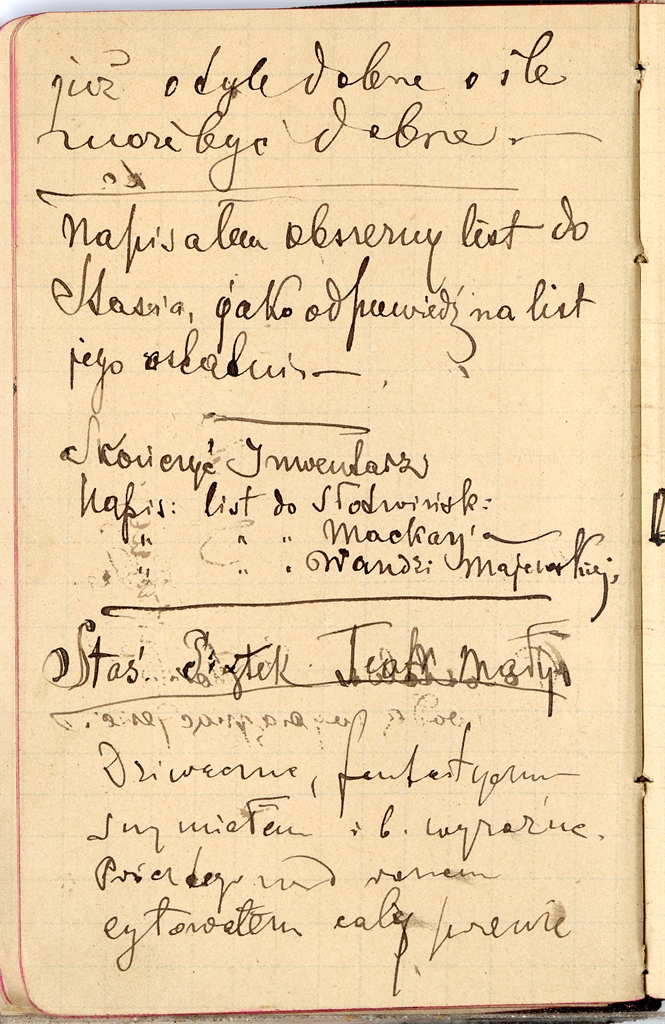 już o tyle dobre o ile
może być dobre. —
Napisałem obszerny list do
Stasia, jako odpowiedź na list
jego ostatni. —
Skończyć Inwentarz
Napis: list do Słotwińsk:
" " " Mackay'a
" " " Wandzi Majewskiej.
Staś. Piątek Teatr Mały
Dziwaczne, fantastyczne
sny miałem i b. wyraźne.
nad ranem
cytowałem cały prawie